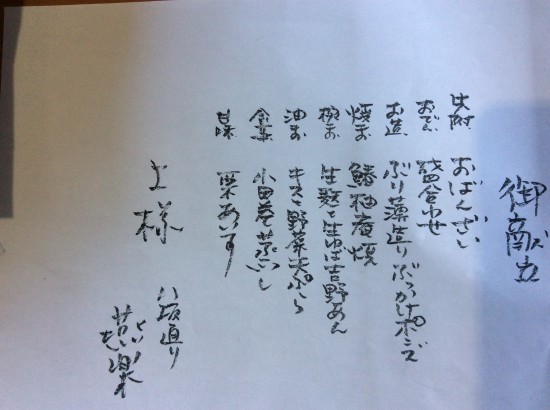 御献立
先附 おばんざい
おでん 盛合わせ
お造 ぶり藻造り ぶっかけポンズ
焼お 鰆柚庵焼
椀お 生麩と生ゆば吉野あん
油お キスと野菜天ぷら
食事 小田巻き蒸し
甘味 栗あいす
上様
八坂通り